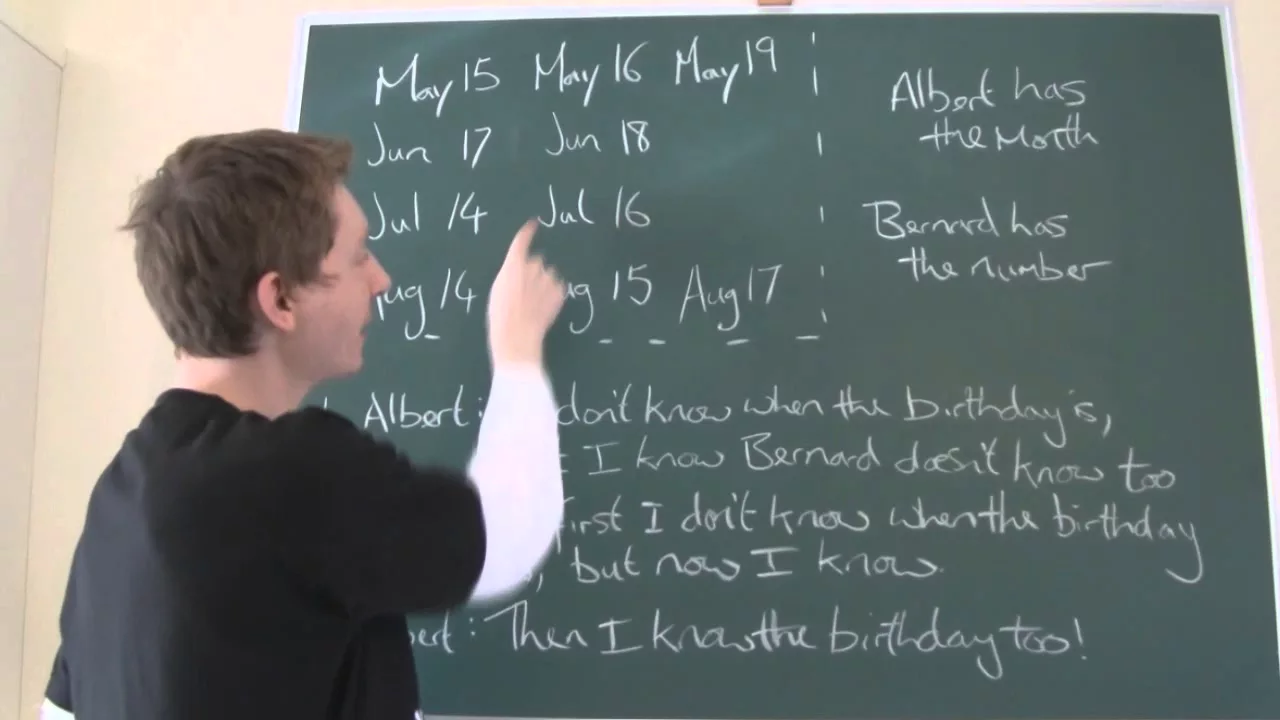 May 15 May 16 May 19
Jun 17 Jun 18
Jul 14 Jul 16
Aug 14 Aug 15 Aug 17
Albert has
the Month
Bernard has
the number
Albert: don't know when the birthday is,
I know Bernard doesn't know too
first I don't know when the birthday
but now I know.
Then I know the birthday too!